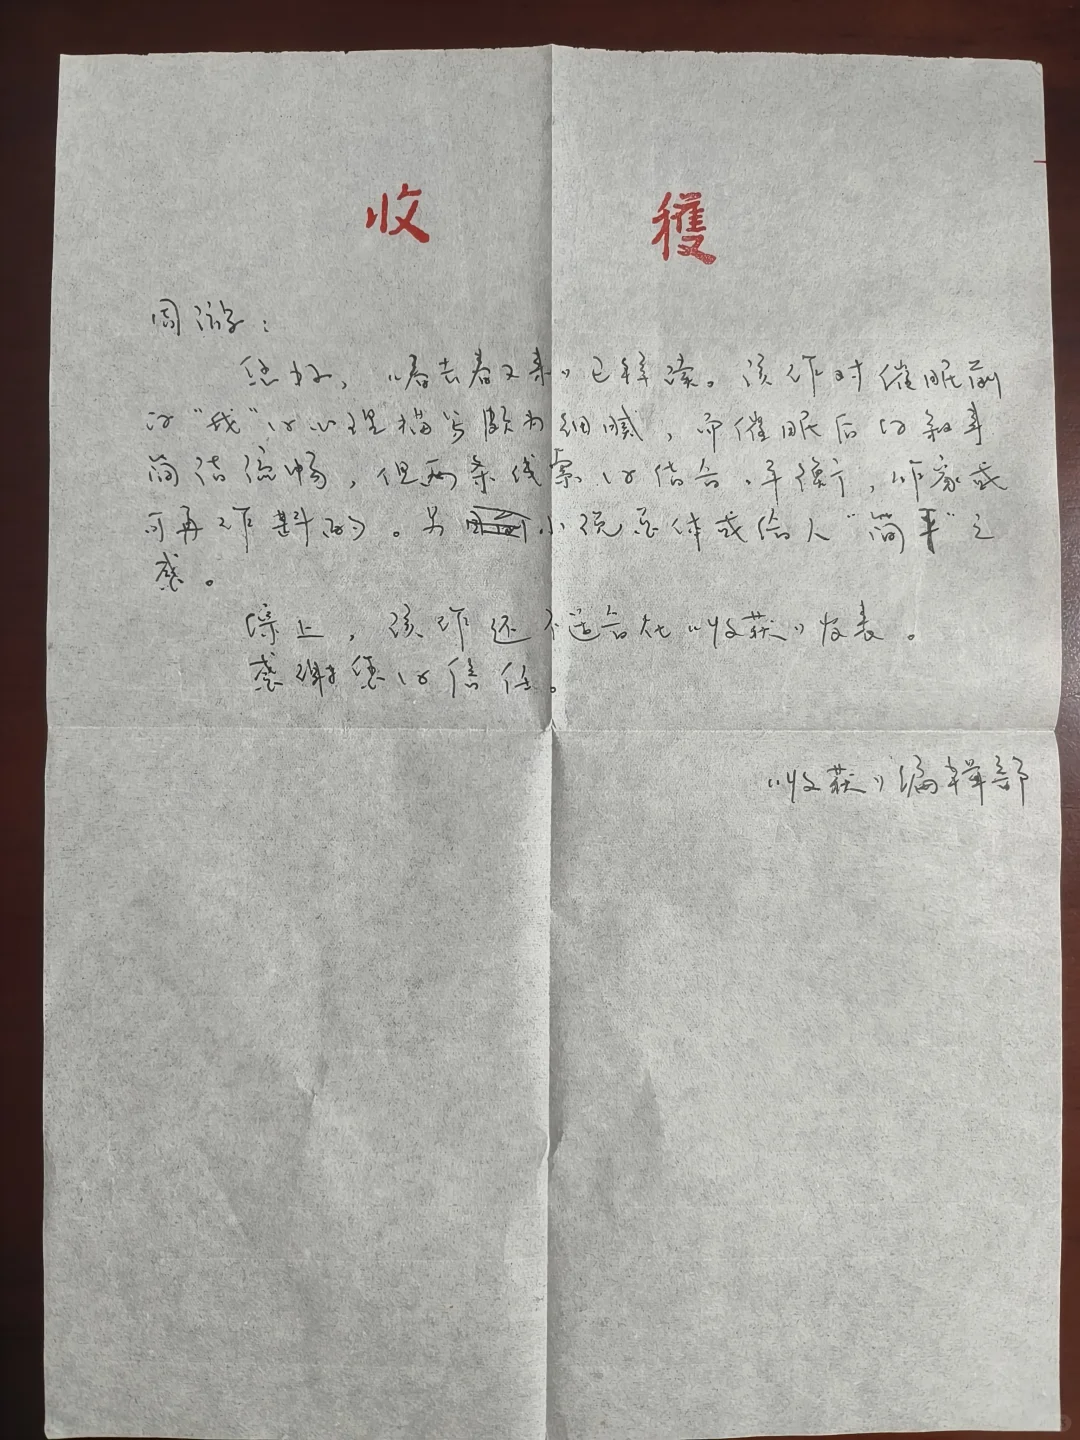 收 穫
周游：
您好，《春去春又来》已拜读。该作对催眠前
的“我”的心理描写颇为细腻，而催眠后的叙事
简洁流畅，但两条线索的结合、平衡，作家或
可再作斟酌。另小说总体或给人“简平”之
感。
综上，该作还不适合在《收获》发表。
感谢您的信任。
《收获》编辑部